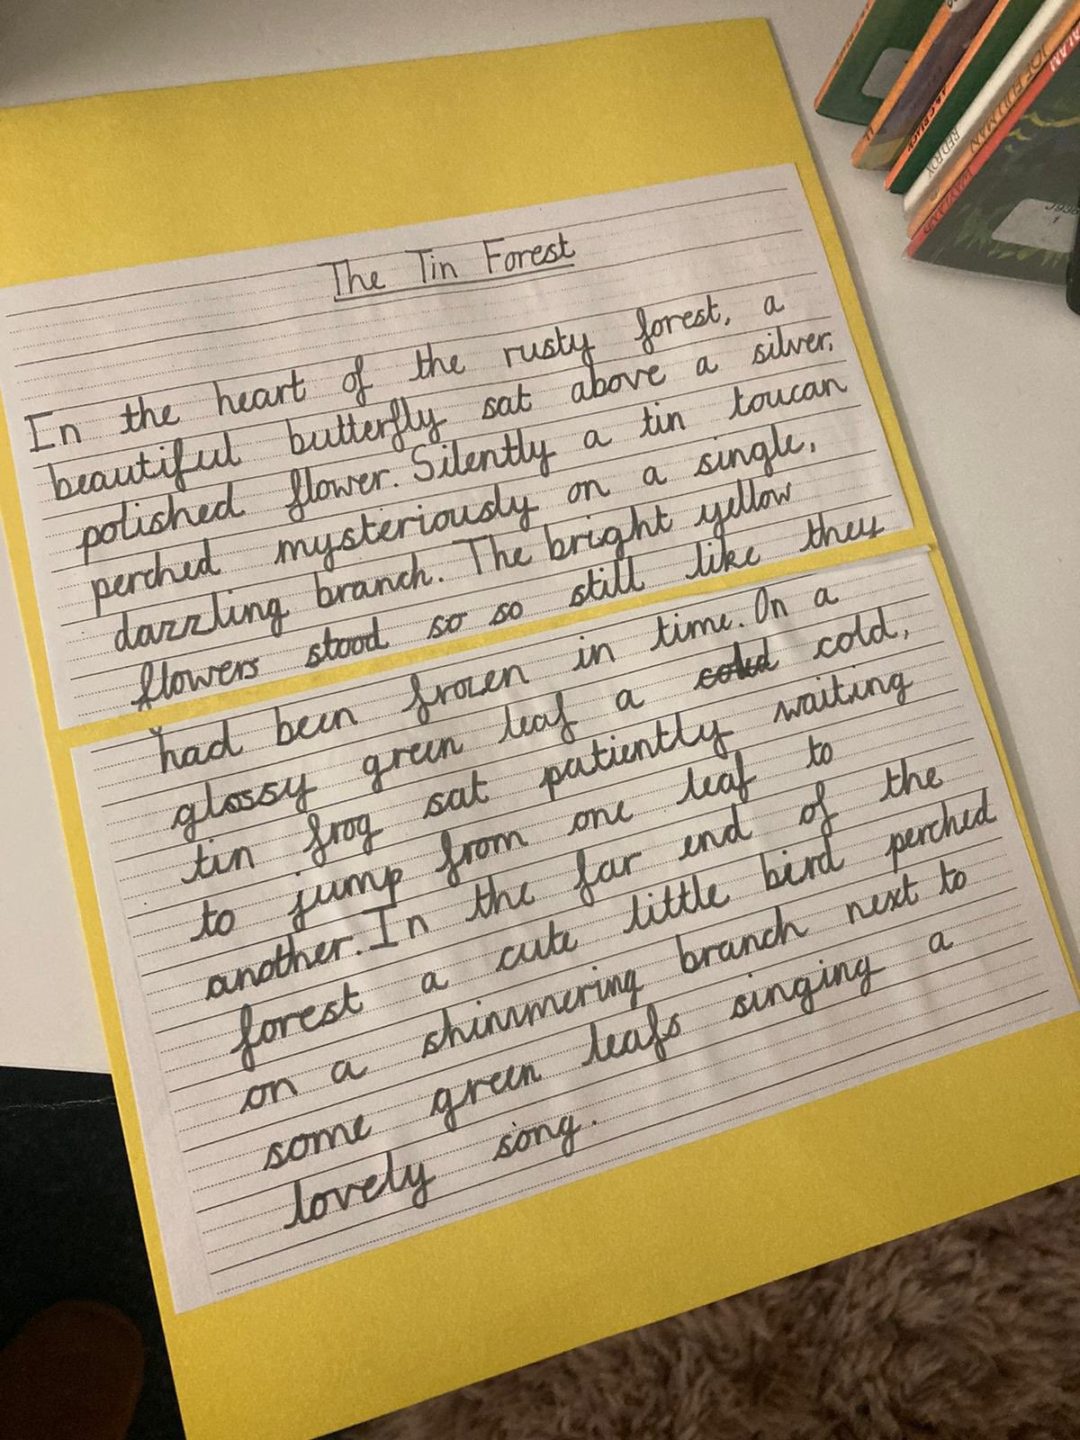 The Tin Forest
In the heart of the rusty forest, a
beautiful butterfly sat above a silver,
polished flower. Silently a tin toucan
perched mysteriously on a single,
dazzling branch. The bright yellow
flowers stood so so still like they
had been frozen in time. On a
glossy green leaf a cold cold,
tin frog sat patiently waiting
to jump from one leaf to
another. In the far end of the
forest a cute little bird perched
on a shimmering branch next to
some green leafs singing a
lovely song.
A&C BLACK
RED FOX
JOE FULLMAN
WAYLAND